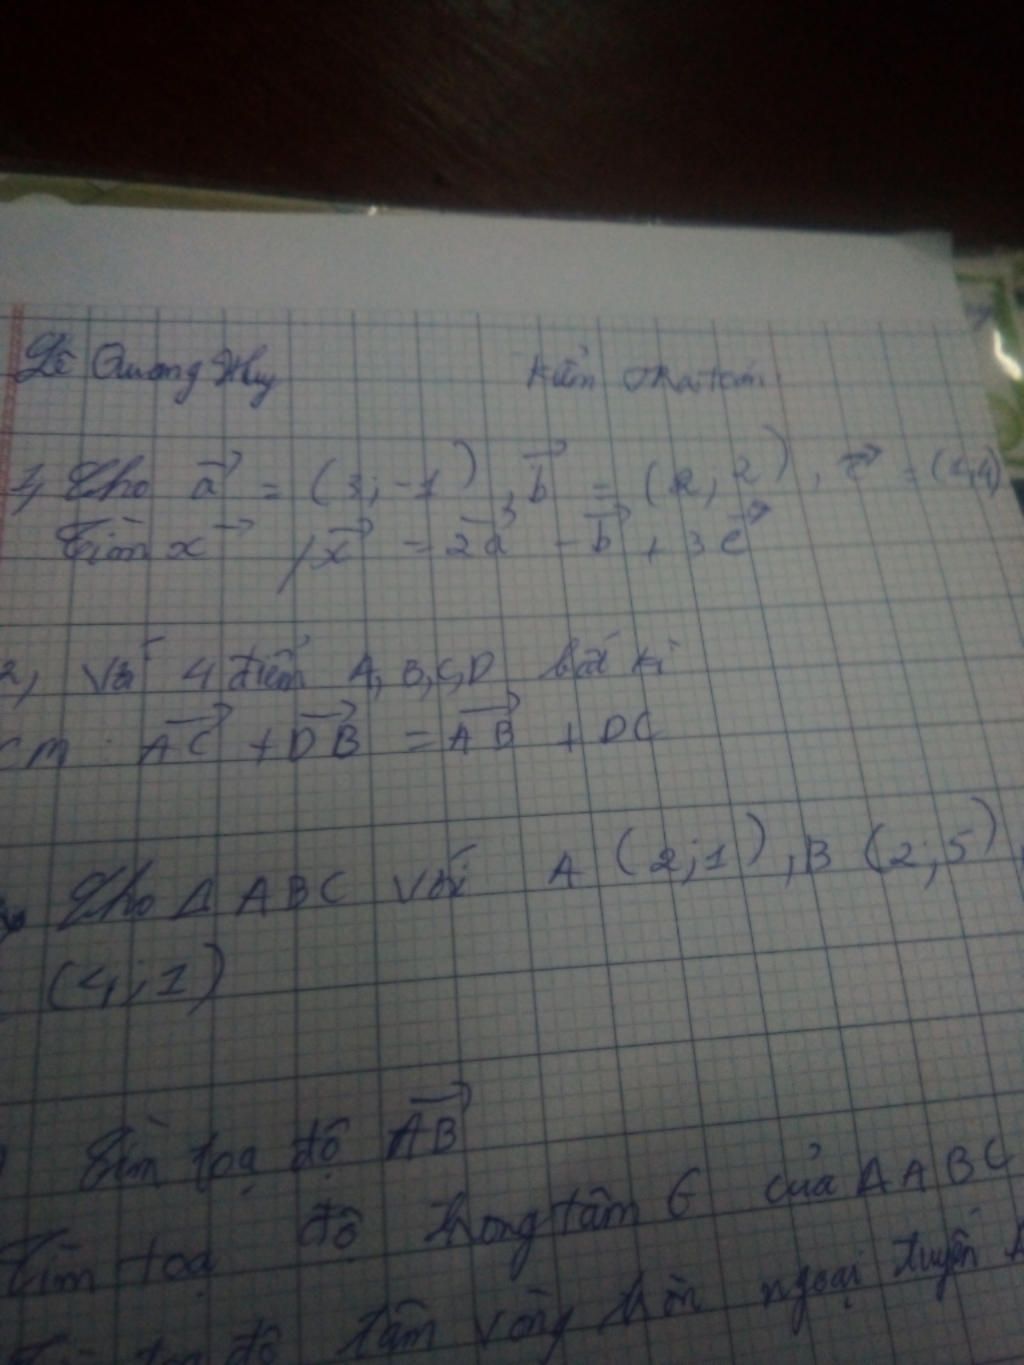 Lê Quang Huy Kiểm tra toán
1, Cho a→ = (3;-1), b→ = (2;2), c→ = (1;4)
Tìm x→, x→ = 2a→ - b→ + 3c→
2, Với 4 điểm A, B, C, D bất kì
CM: AC→ + DB→ = AB→ + DC
Cho Δ ABC với A (2;1), B (2;5)
(4;1)
Tìm toạ độ AB→
Tìm toạ độ trong tâm G của Δ ABC
toạ độ tâm vòng tròn ngoại tuyến